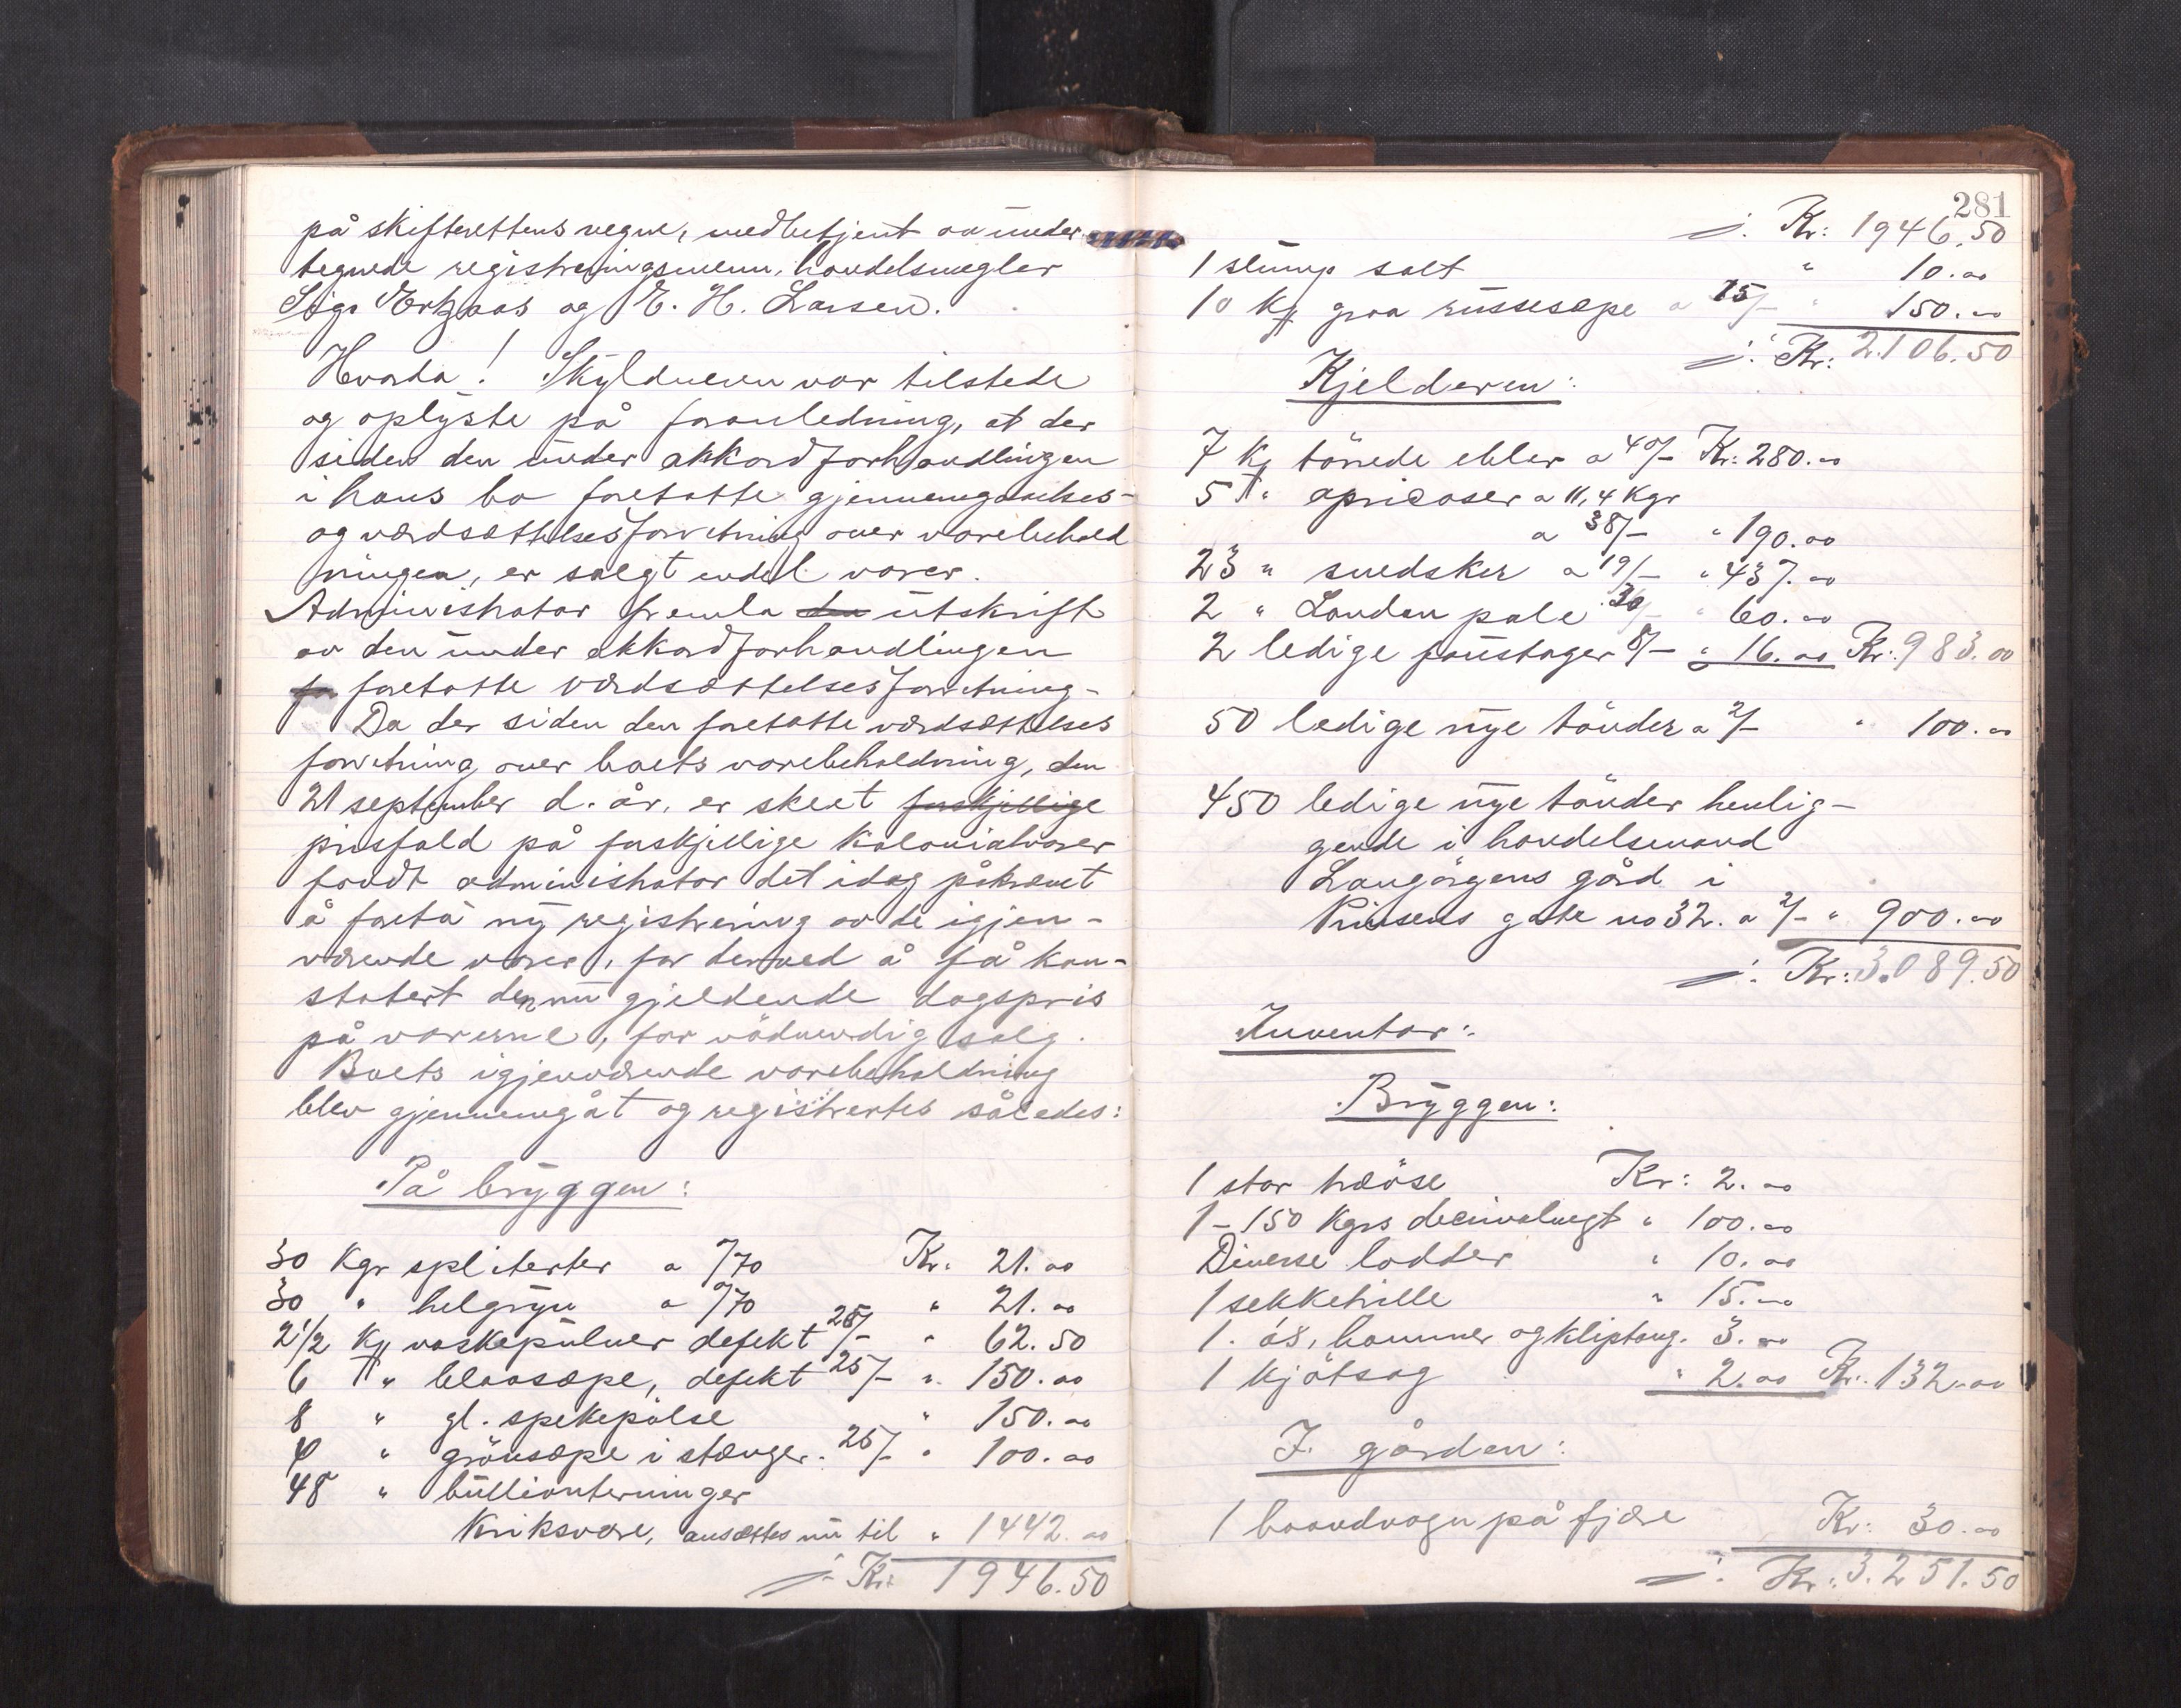 på skifterettens vegne, medbetjent av under
tegnede registreringsmenn, handelsmegler
Sigr Ertzaas og E. H. Larsen.
Hvorda! Skyldneren var tilstede
og oplyste på foranledning, at der
siden den under akkordforhandlingen
i hans bo foretatte gjennemgåelses-
og værdsættelsesforretning over varebehold
ningen, er solgt endel varer.
Administrator fremla utskrift
av den under akkordforhandlingen
foretatte værdsættelsesforretning-
Da der siden den foretatte værdsættelses
forretning over boets varebeholdning, den
21 september d. år, er skeet forskjellige
prisfald på forskjellige kolonialvarer
fandt administrator det idag påkrævet
å foreta ny registrering av de igjen-
værende varer, for derved å få kon-
statert den nu gjeldende dagspris
på varerne, før nödvendig salg.
Boets igjenværende varebeholdning
blev gjennemgåt og registrertes således:
På bryggen:
30 Kgr spliterter a -/70 Kr. 21.00
30 " helgryn a -/70 " 21.00
2 1/2 Ks vaskepulver defekt 25/- " 62.50
6 " blaasæpe, defekt 25/- " 150.00
8 " gl. spekepölse " 150.00
4 " grönsæpe i stænger. 25/- " 100.00
48 " bullionterninger
Kriksvare, ansættes nu til " 1442.00
Kr: 1946.50
281
Kr: 1946.50
1 slump salt " 10.00
10 Ks graa russesæpe a 15/- " 150.00
Kr: 2.106.50
Kjelderen:
7 Ks törrede ebler a 40/- Kr: 280.00
5 " apricoser a 11,4 Kgr
a 38/- " 190.00
23 " svedsker a 19/- " 437.00
2 " London pale 30/- " 60.00
2 ledige faustager 8/- " 16.00 Kr: 983.00
50 ledige nye tönder a 2/- " 100.00
450 ledige nye tönder henlig-
gende i handelsmand
Langörgens gård i
Prinsens gate no 32. a 2/- " 900.00
Kr: 3.089.50
Inventar:
Bryggen:
1 stor træöse Kr: 2.00
1-150 Kgrs decimalvegt " 100.00
Diverse lodder " 10.00
1 sekketrille " 15.00
1. øs, hammer og kliptang. 3.00
1 kjötsag " 2.00 Kr. 132.00
I gården:
1 haandvogn på fjære Kr: 30.00
Kr: 3.251.50